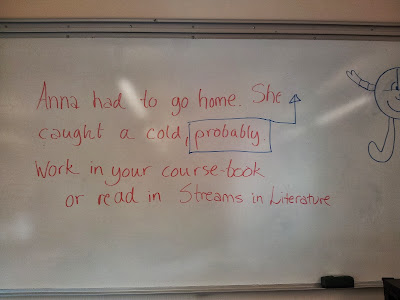 Anna had to go home. She
caught a cold, probably.
Work in your course-book
or read in Streams in Literature